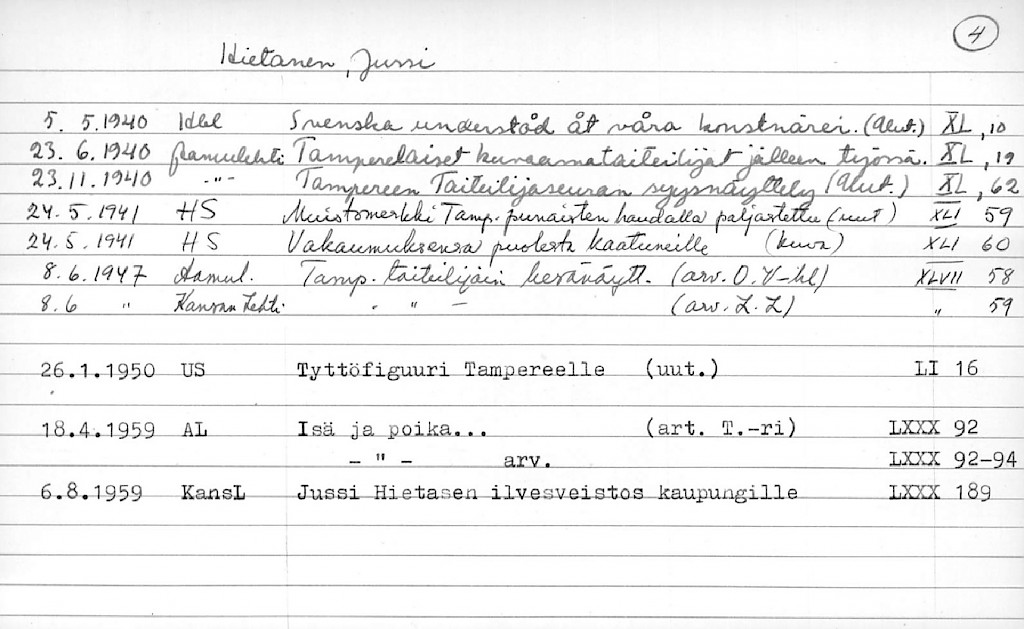 4
Hietanen, Jussi
5. 5.1940 Hbl Svenska understöd åt våra konstnärer. (Uut.) XL, 10
23. 6.1940 Aamulehti Tamperelaiset kuvaamataiteilijat jälleen työssä. XL, 19
23.11.1940 -"- Tampereen Taiteilijaseuran syysnäyttely (Uut.) XL, 62
24.5.1941 HS Muistomerkki Tamp. punaisten haudalla paljastettu (uut) XLI 59
24.5.1941 HS Vakaumuksensa puolesta kaatuneille (kuva) XLI 60
8.6.1947 Aamul. Tamp. taiteilijain kesänäytt. (arv. O. V-hl) XLVII 58
8.6 " Kansan Lehti - " - (arv. L. L) " 59
26.1.1950 US Tyttöfiguuri Tampereelle (uut.) LI 16
18.4.1959 AL Isä ja poika... (art. T.-ri) LXXX 92
- " - arv. LXXX 92-94
6.8.1959 KansL Jussi Hietasen ilvesveistos kaupungille LXXX 189